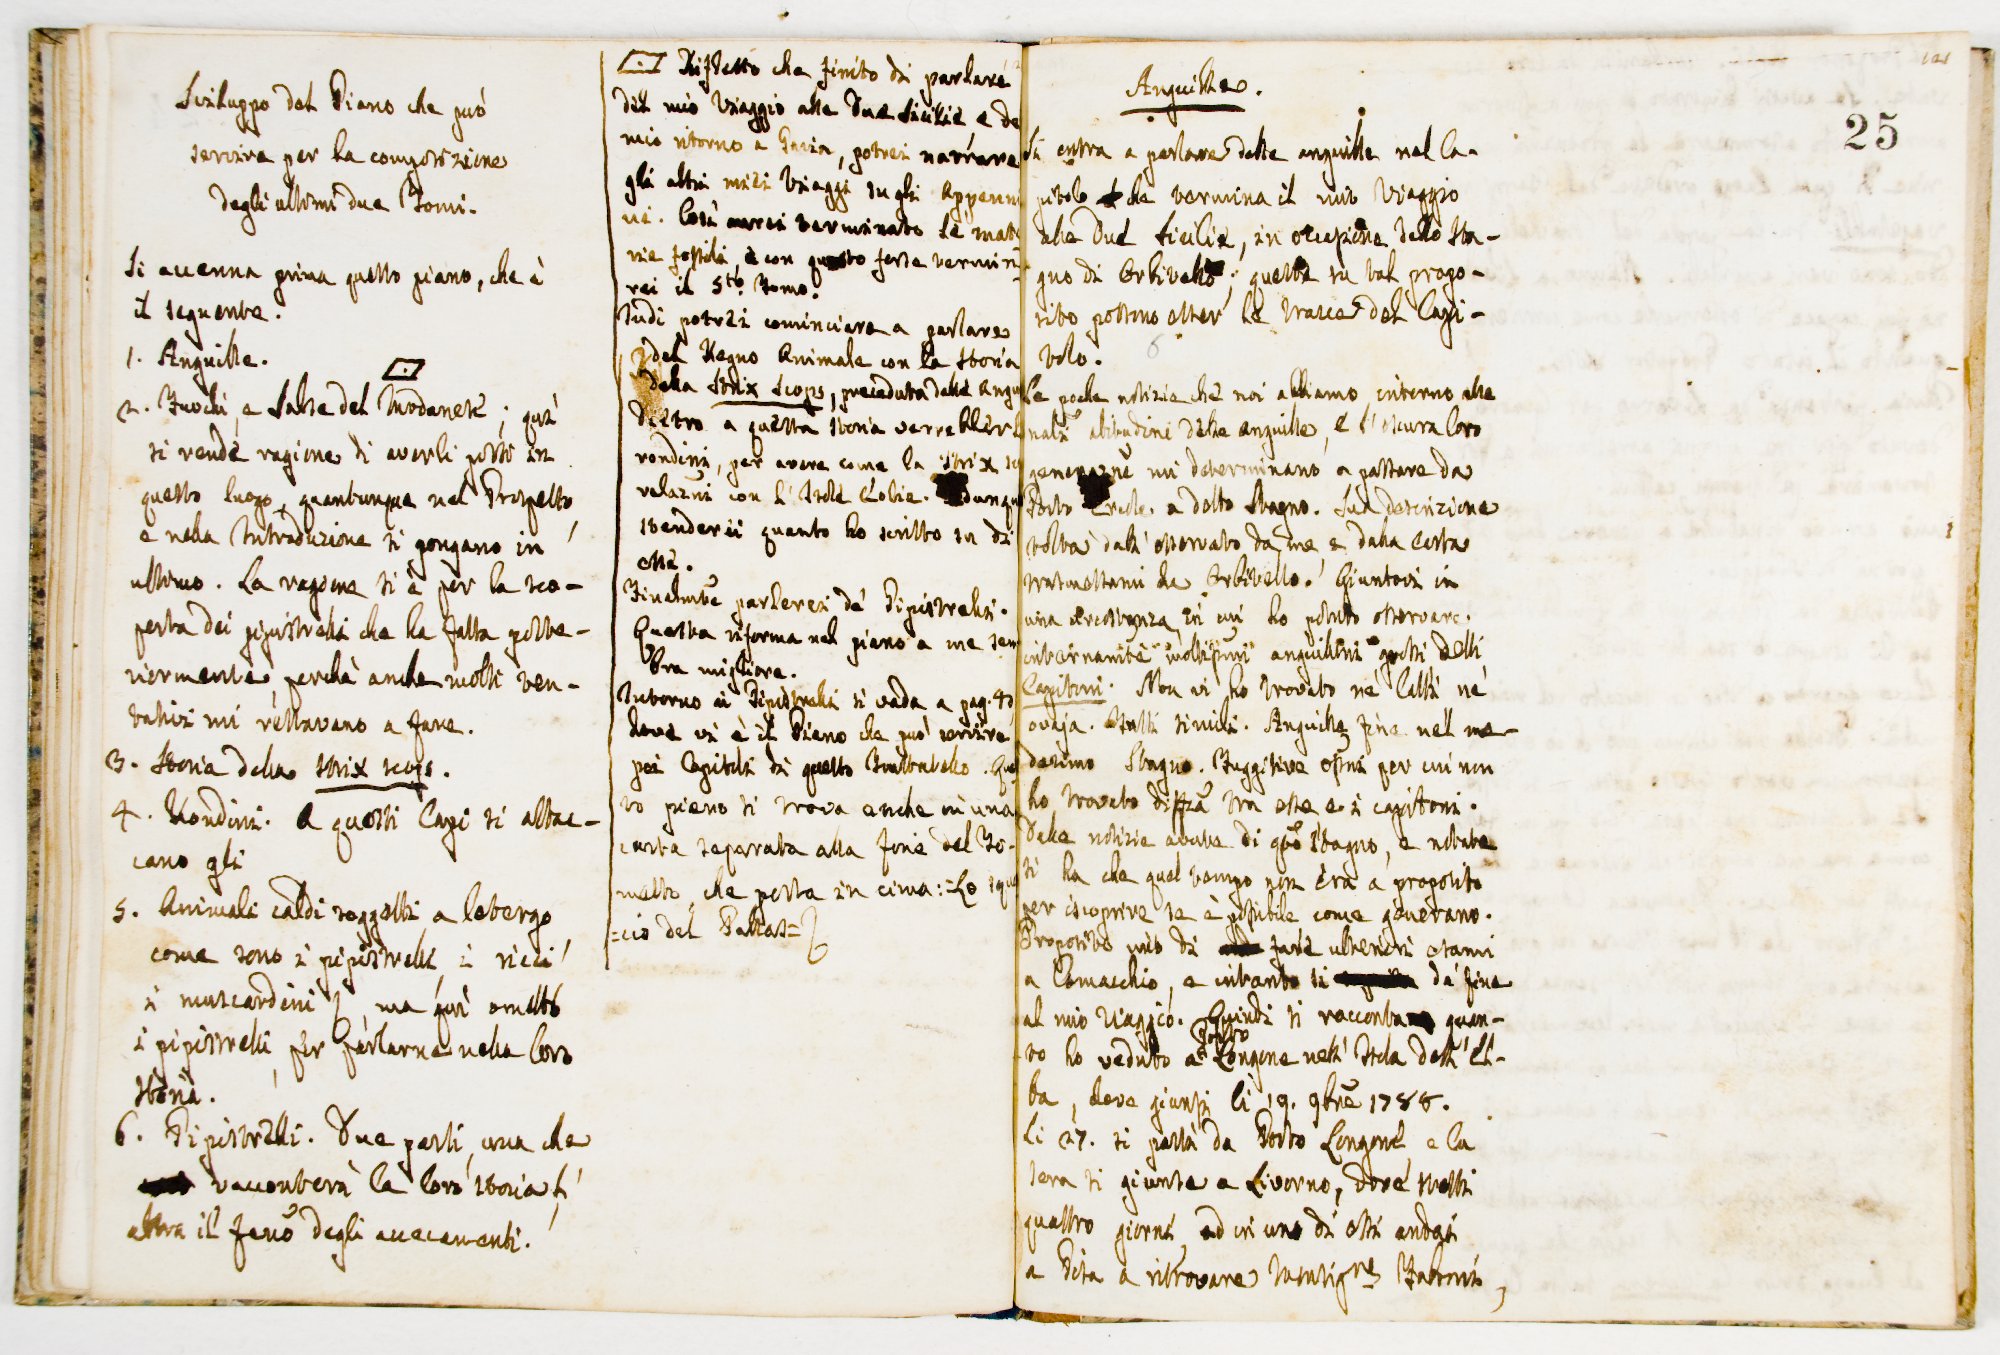 Sviluppo del Piano che può
servire per la composizione
degli ultimi due Tomi.
Si accenna prima questo piano, che è
il seguente.
1. Anguille.
2. Fuochi, e Salse del Modanese; qui
si rende ragione di averli posti in
questo luogo, quantunque nel Prospetto
e nella Introduzione si pongano in
ultimo. La ragione si è per la sco-
perta dei pipistrelli che ho fatta poste-
riormente, perchè anche molti ten-
tativi mi restavano a fare.
3. Storia della strix scops.
4. Rondini. A questi Capi si attac-
cano gli
5. Animali caldi soggetti a letargo
come sono i pipistrelli, i ricci
i moscardini, ma qui ometto
i pipistrelli per parlarne nella loro
storia.
6. Pipistrelli. Due parti, una che
racconterà la loro storia,
altra il feno degli accecamenti.
Rifletto che finito di parlare
del mio Viaggio alle Due Sicilie e de
mio ritorno a Pavia, potrei narrare
gli altri miei Viaggi sugli Appenni
ni. Così avrei terminato le mate
rie fossili, e con questo forse termine-
rei il 5to. Tomo.
Indi potrei cominciare a parlare
del Regno Animale con la storia
della Strix Scops, preceduta dalle Angui
Dietro a questa storia verrebber le
rondini, per avere come la Strix sc
relazni con l'Isole Eolie. dunque
stenderei quanto ho scritto su di
esse.
Finalmte parlerei de' Pipistrelli.
Questa riforma nel piano a me sem
bra migliore.
Intorno ai Pipistrelli si vada a pag. 40
dove vi è il Piano che può servire
pei Capitoli di questo Trattatello. Que
to piano si trova anche in una
carta separata alla fine del To-
metto, che porta in cima: = Lo squa
=cio del Pallas=
Anguille.
25
Si entra a parlare delle anguille nel Ca-
pitolo che termina il mio Viaggio
alle Due Sicilie, in occasione dello Sta-
gno di Orbitello; questa su tal propo-
sito possono esser le tracce del Capi-
tolo.
Le poche notizie che noi abbiamo intorno alle
nali abitudini delle anguille, e l'oscura loro
generazne mi determinano a passare da
Porto Ercole a detto Stagno. Sua descrizione
tolta dall' osservato da me e dalla Carta
trasmessami da Orbitello. Giuntovi in
una circostanza in cui ho potuto osservare
internamte moltissmi anguilloni grossi detti
Capitoni. Non vi ho trovato nè latti nè
ovaja. Tutti simili. Anguille fine nel me-
desimo Stagno. Fuggitive ossni per cui non
ho trovato diffza tra esse e i capitoni.
Dalle notizie avute di qsto Stagno, e notate
si ha che quel tempo non era a proposito
per iscoprire se è possibile come generano.
Proposito mio di fare ulteriori esami
a Comacchio, e intanto si da fine
al mio Viaggio. Quindi si racconta quan-
to ho veduto a Porto Longone nell' Isola dell' El-
ba, dove giunsi li 19. 9bre 1788.
Li 27. si partì da Porto Longone, e la
sera si giunse a Livorno, dove stetti
quattro giorni, ed in uno di essi andai
a Pisa a ritrovare Monsigre Fabroni,